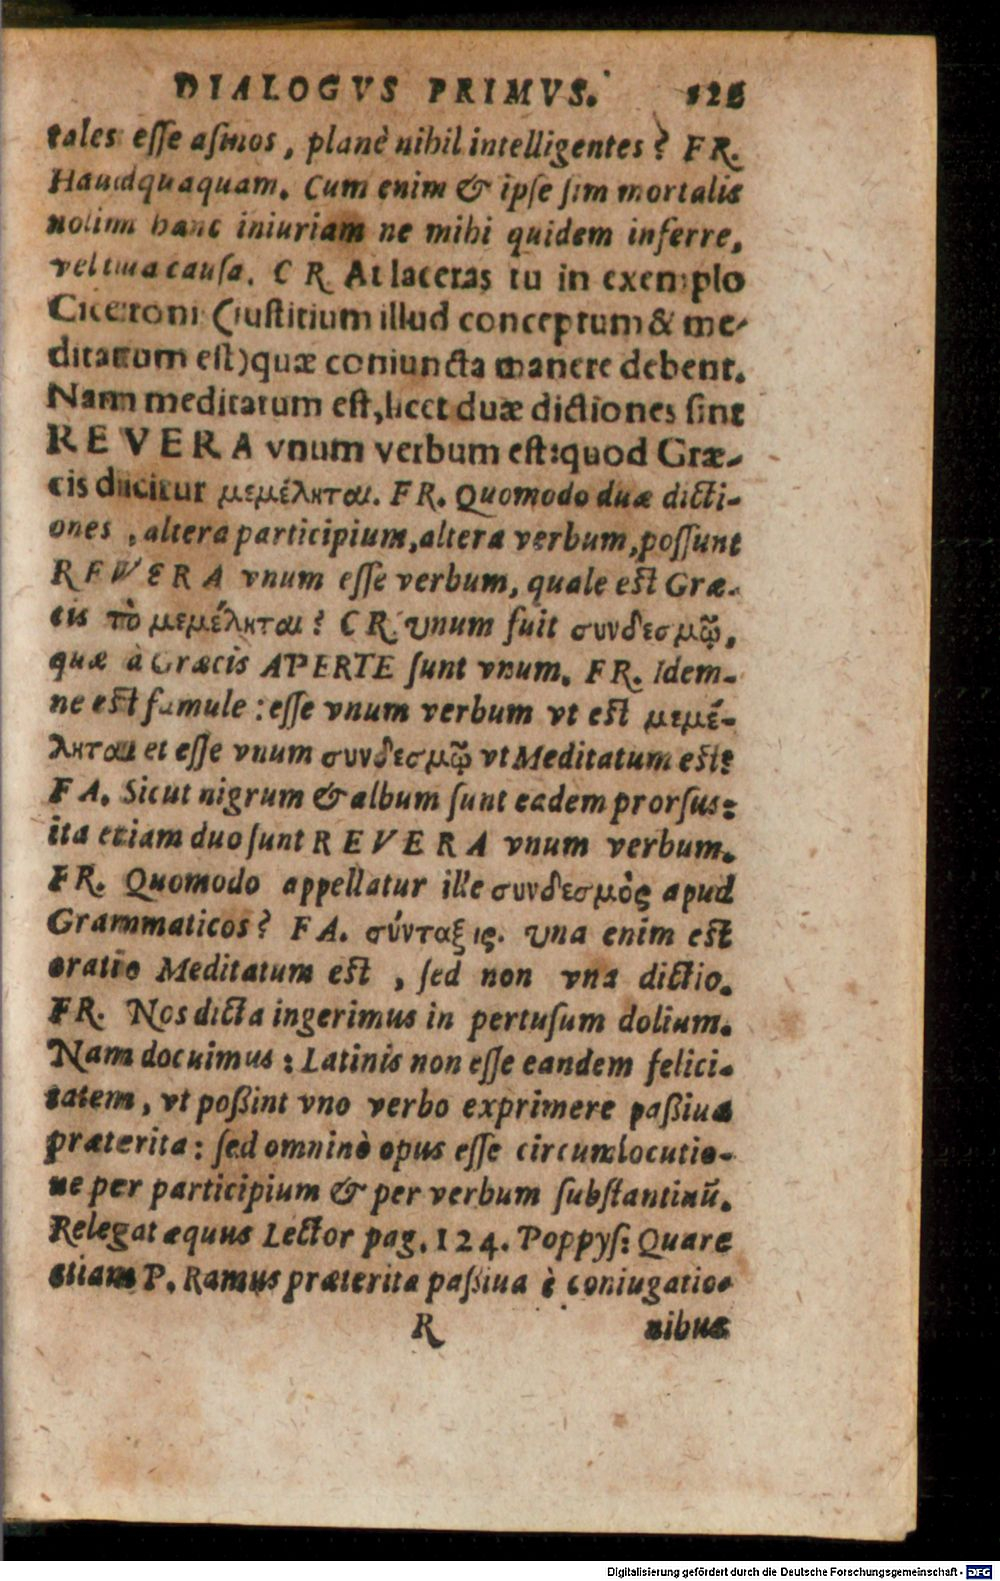 DIALOGVS PRIMVS. 128
tales esse asinos, planè nihil intelligentes? FR.
Haudquaquam. Cum enim & ipse sim mortalis
nolim hanc iniuriam ne mihi quidem inferre,
vel tua causa. CR At laceras tu in exemplo
Ciceroni (iustitium illud conceptum & me-
ditatum est) quæ coniuncta manere debent.
Nam meditatum est, licet duæ dictiones sint
REVERA vnum verbum est: quod Græ-
cis dicitur μεμέληται. FR. Quomodo duæ dicti-
ones, altera participium, altera verbum, possunt
REVERA vnum esse verbum, quale est Græ-
cis τὸ μεμέληται? CR. Vnum fuit συνδεσμῷ,
quæ à Græcis APERTE sunt vnum. FR. Idem-
ne est famule: esse vnum verbum vt est μεμέ-
ληται et esse vnum συνδεσμῷ vt Meditatum est?
FA. Sicut nigrum & album sunt eadem prorsus:
ita etiam duo sunt REVERA vnum verbum.
FR. Quomodo appellatur ille συνδεσμὸς apud
Grammaticos? FA. σύνταξις. Vna enim est
oratio Meditatum est, sed non vna dictio.
FR. Nos dicta ingerimus in pertusum dolium.
Nam docuimus: Latinis non esse eandem felici-
tatem, vt poßint vno verbo exprimere paßiua
præterita: sed omninò opus esse circumlocutio-
ne per participium & per verbum substantiuū.
Relegat æquus Lector pag. 124. Poppys: Quare
etiam P. Ramus præterita paßiua è coniugatio-
R nibus
Digitalisierung gefördert durch die Deutsche Forschungsgemeinschaft - DFG